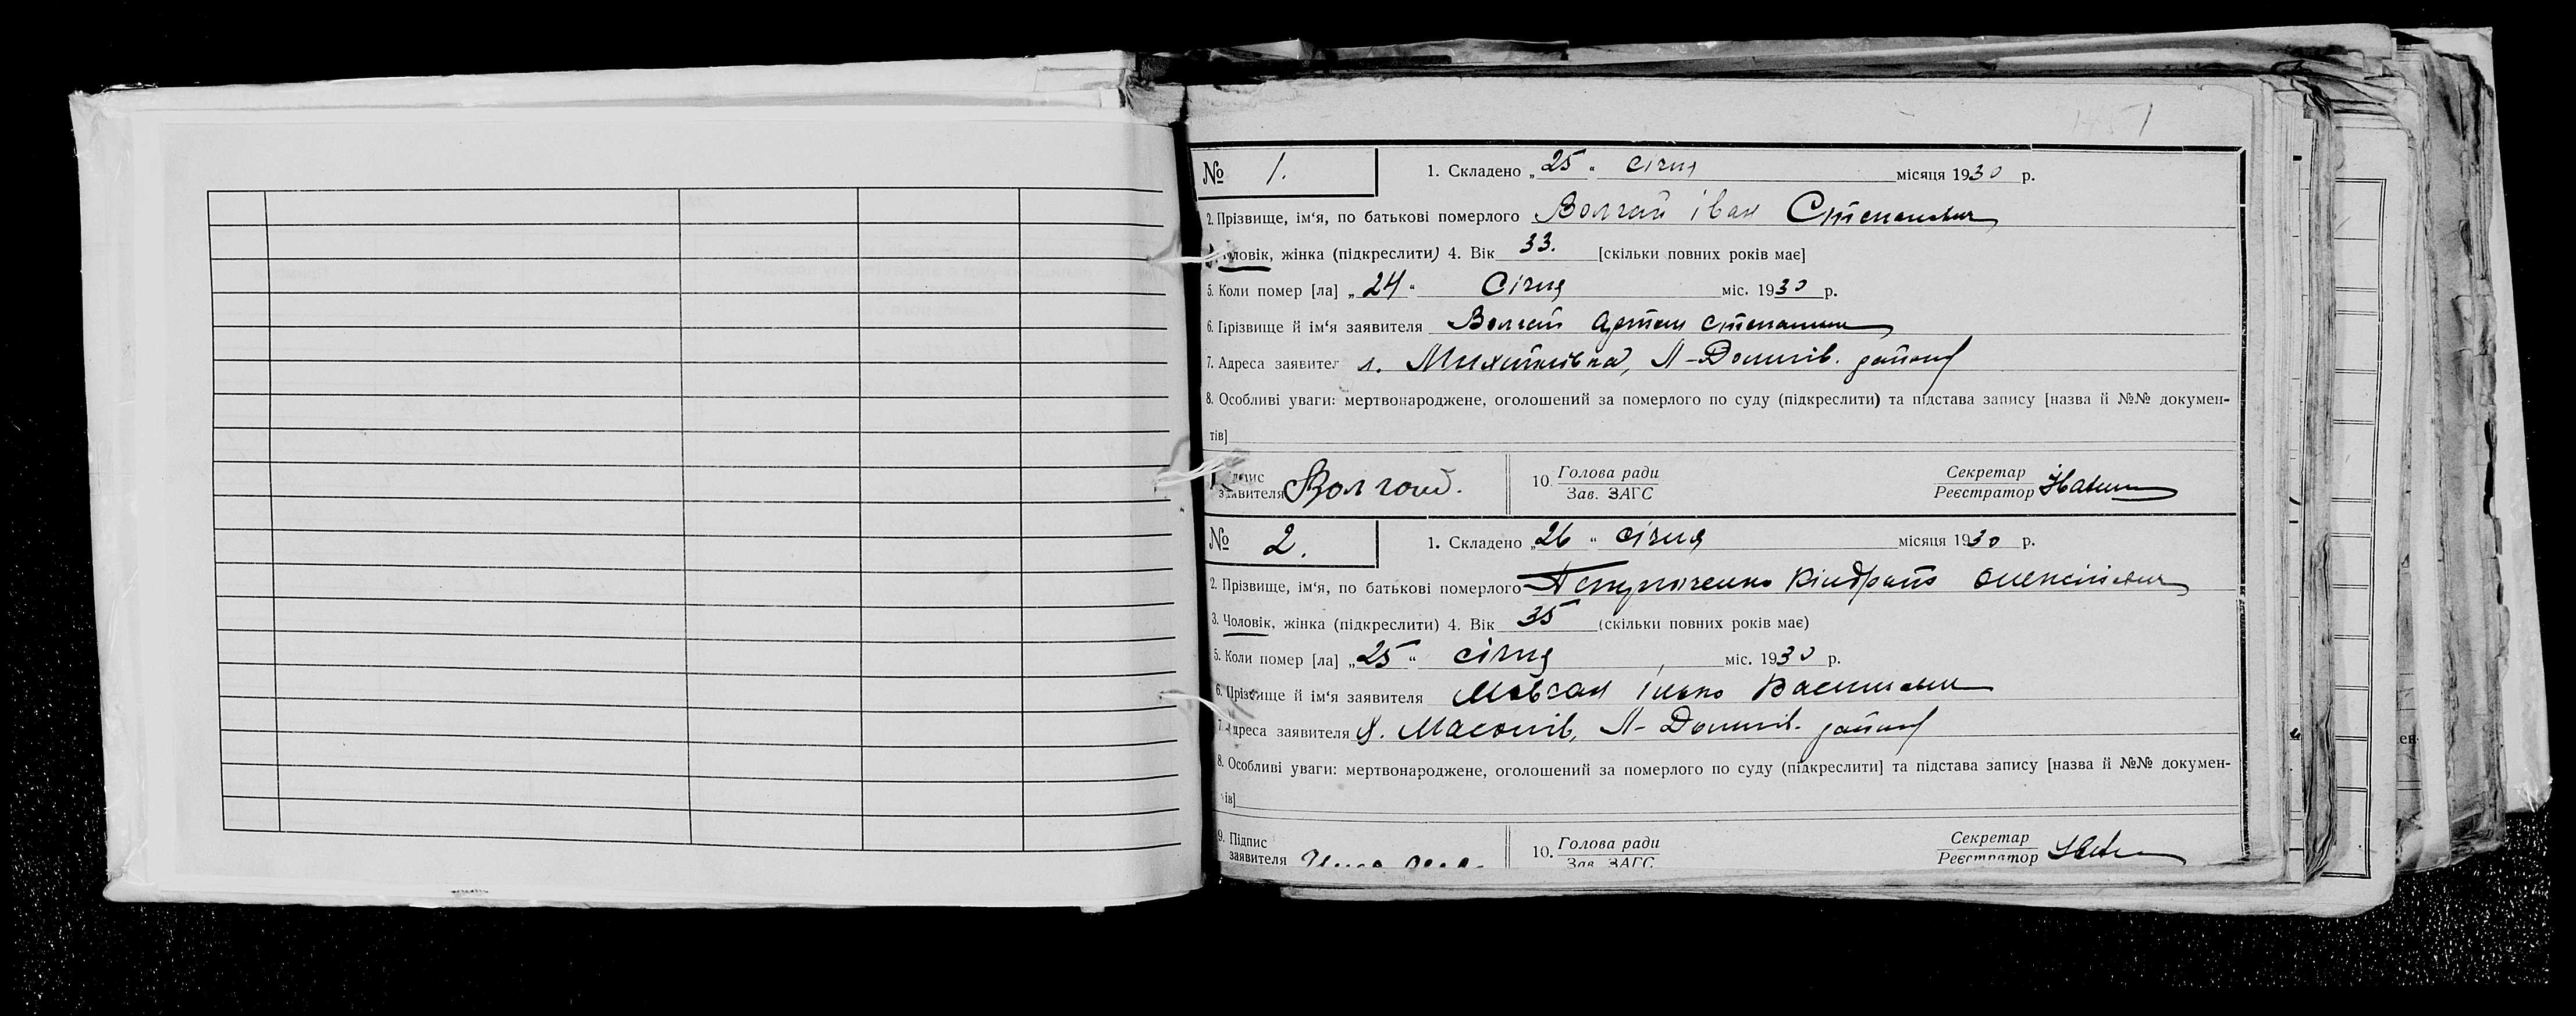 1451
№ 1.
1. Складено „25“ січня місяця 1930 р.
2. Прізвище, ім‘я, по батькові померлого Волгай іван Степанович
Чоловік, жінка (підкреслити) 4. Вік 33. [скільки повних років має]
5. Коли помер [ла] „24“ Січня міс. 1930 р.
6. Прізвище й ім‘я заявителя Волгай Артем Степанович
7. Адреса заявител х. Михайлівка, Л-Долинів. району
8. Особливі уваги: мертвонароджене, оголошений за померлого по суду (підкреслити) та підстава запису [назва й №№ докумен-
тів]
Підпис заявителя Волгай. 10. Голова ради Зав. ЗАГС Секретар Реєстратор
№ 2.
1. Складено „26“ січня місяця 1930 р.
2. Прізвище, ім‘я, по батькові померлого Кіндрат Олексійович
3. Чоловік, жінка (підкреслити) 4. Вік 35 (скільки повних років має)
5. Коли помер [ла] „25“ січня міс. 1930 р.
6. Прізвище й ім‘я заявителя Мовсан Ілько Васильович
7. Адреса заявителя Л-Долинів. району
8. Особливі уваги: мертвонароджене, оголошений за померлого по суду (підкреслити] та підстава запису [назва й №№ докумен-
ів]
9. Підпис заявителя 10. Голова ради Зав. ЗАГС Секретар Реєстратор